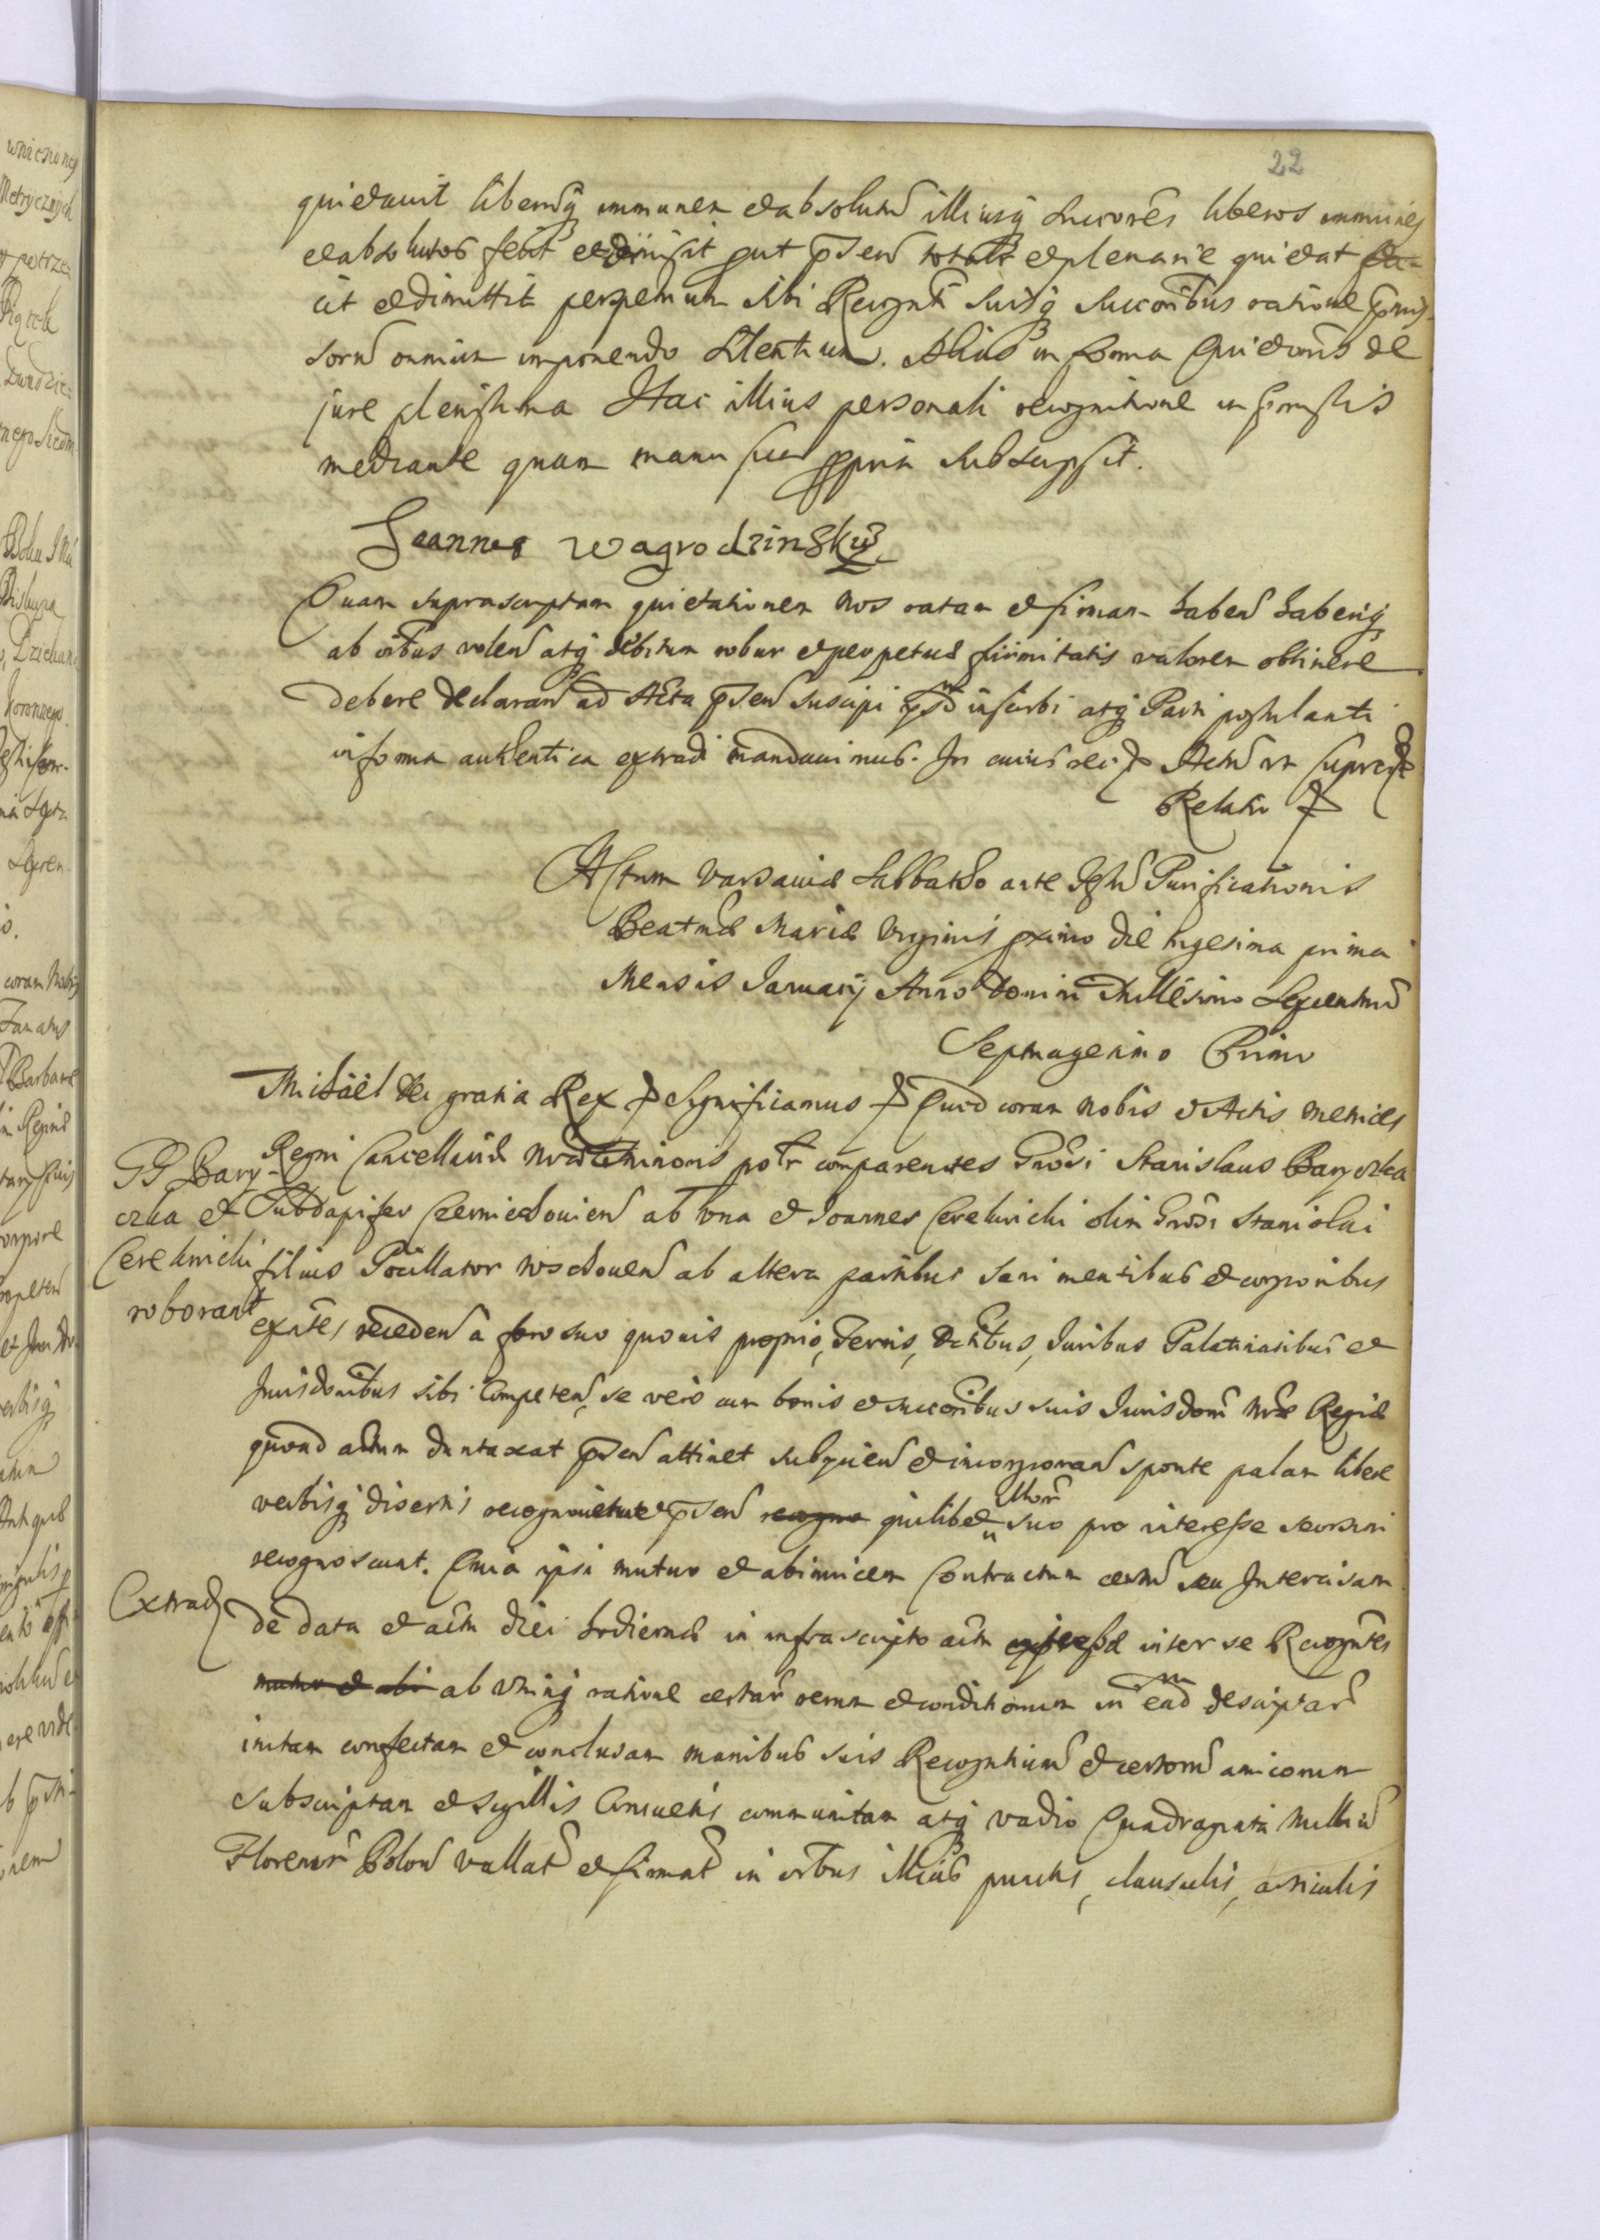 22
quietavit liberumq immunem et absolutum illiusq succores liberos immunes
et absolutos fecit et dimisit put pnsen totalr et plenarie quietat fa-
cit et dimittit perpetuum sibi Recognti suisq succoribus ratione pmis-
sorum omnium imponendo silentium. Alias in forma Quietaonis de
jure plenissima Hac illius personali recognitione in pmissis
mediante quam manu sua ppria subscripsit.
Joannes Wagrodzinsky
Quam suprascriptam quietationem nos ratam et firmam haben haberiq
ab oibus volen atq debitum robur et perpetuae firmitatis valorem obtinere
debere declaran ad Acta pnsen suscipi inscribi atq Parti postulanti
in forma authentica extradi mandavimus. In cuius rei Actum ut supra
Relatio
Actum Varsaviae Sabbatho ante Festum Purificationis
Beatmae Mariae Virginis pximo die trigesima prima
Mensis Januarij Anno Domini Millesimo Sexcentmo
Septuagesimo Primo
Michael Dei gratia Rex Significamus Quod coram nobis et Actis Metrices
GG Bary-
czka et
Cerekwicki
roborant
Regni Cancellariae nrae Minoris psolr comparentes Gnosi Stanislaus Baryczka
Subdapifer Czerniechovien ab una et Joannes Cerekwicki olim Gnosi Stanislai
filius Pocillator wschoven ab altera partibus sani mentibus et corporibus
existes receden a foro suo quovis proprio, Terris, Distibus, Juribus Palatinatibus et
Jurisdonibus sibi Competen, se vero cum bonis et succoribus suis Jurisdoni nrae Regiae
quoad actum duntaxat pnsen attinet subijcien et incorporan sponte palam libere
verbisq disertis recognoverunt pnsen recogno quilibet illorum suo pro interesse seorsim
recognoscunt. Quia ipsi mutuo et ab invicem Contractum certum seu Intercisam
Extrad
de data et actu diei hodiernae in infrascripto actu expressae inter se Recogntes
mutuo et abi ab utrinq ratione certarum rerum et conditionum in ead descriptar
initam confectam et conclusam manibus suis Recogntium et certorum amicorum
subscriptam et sigillis Consuetis communitam atq vadio Quadraginta Millium
Florenor Polon vallat et firmat in oibus illius punctis, clausulis, articulis